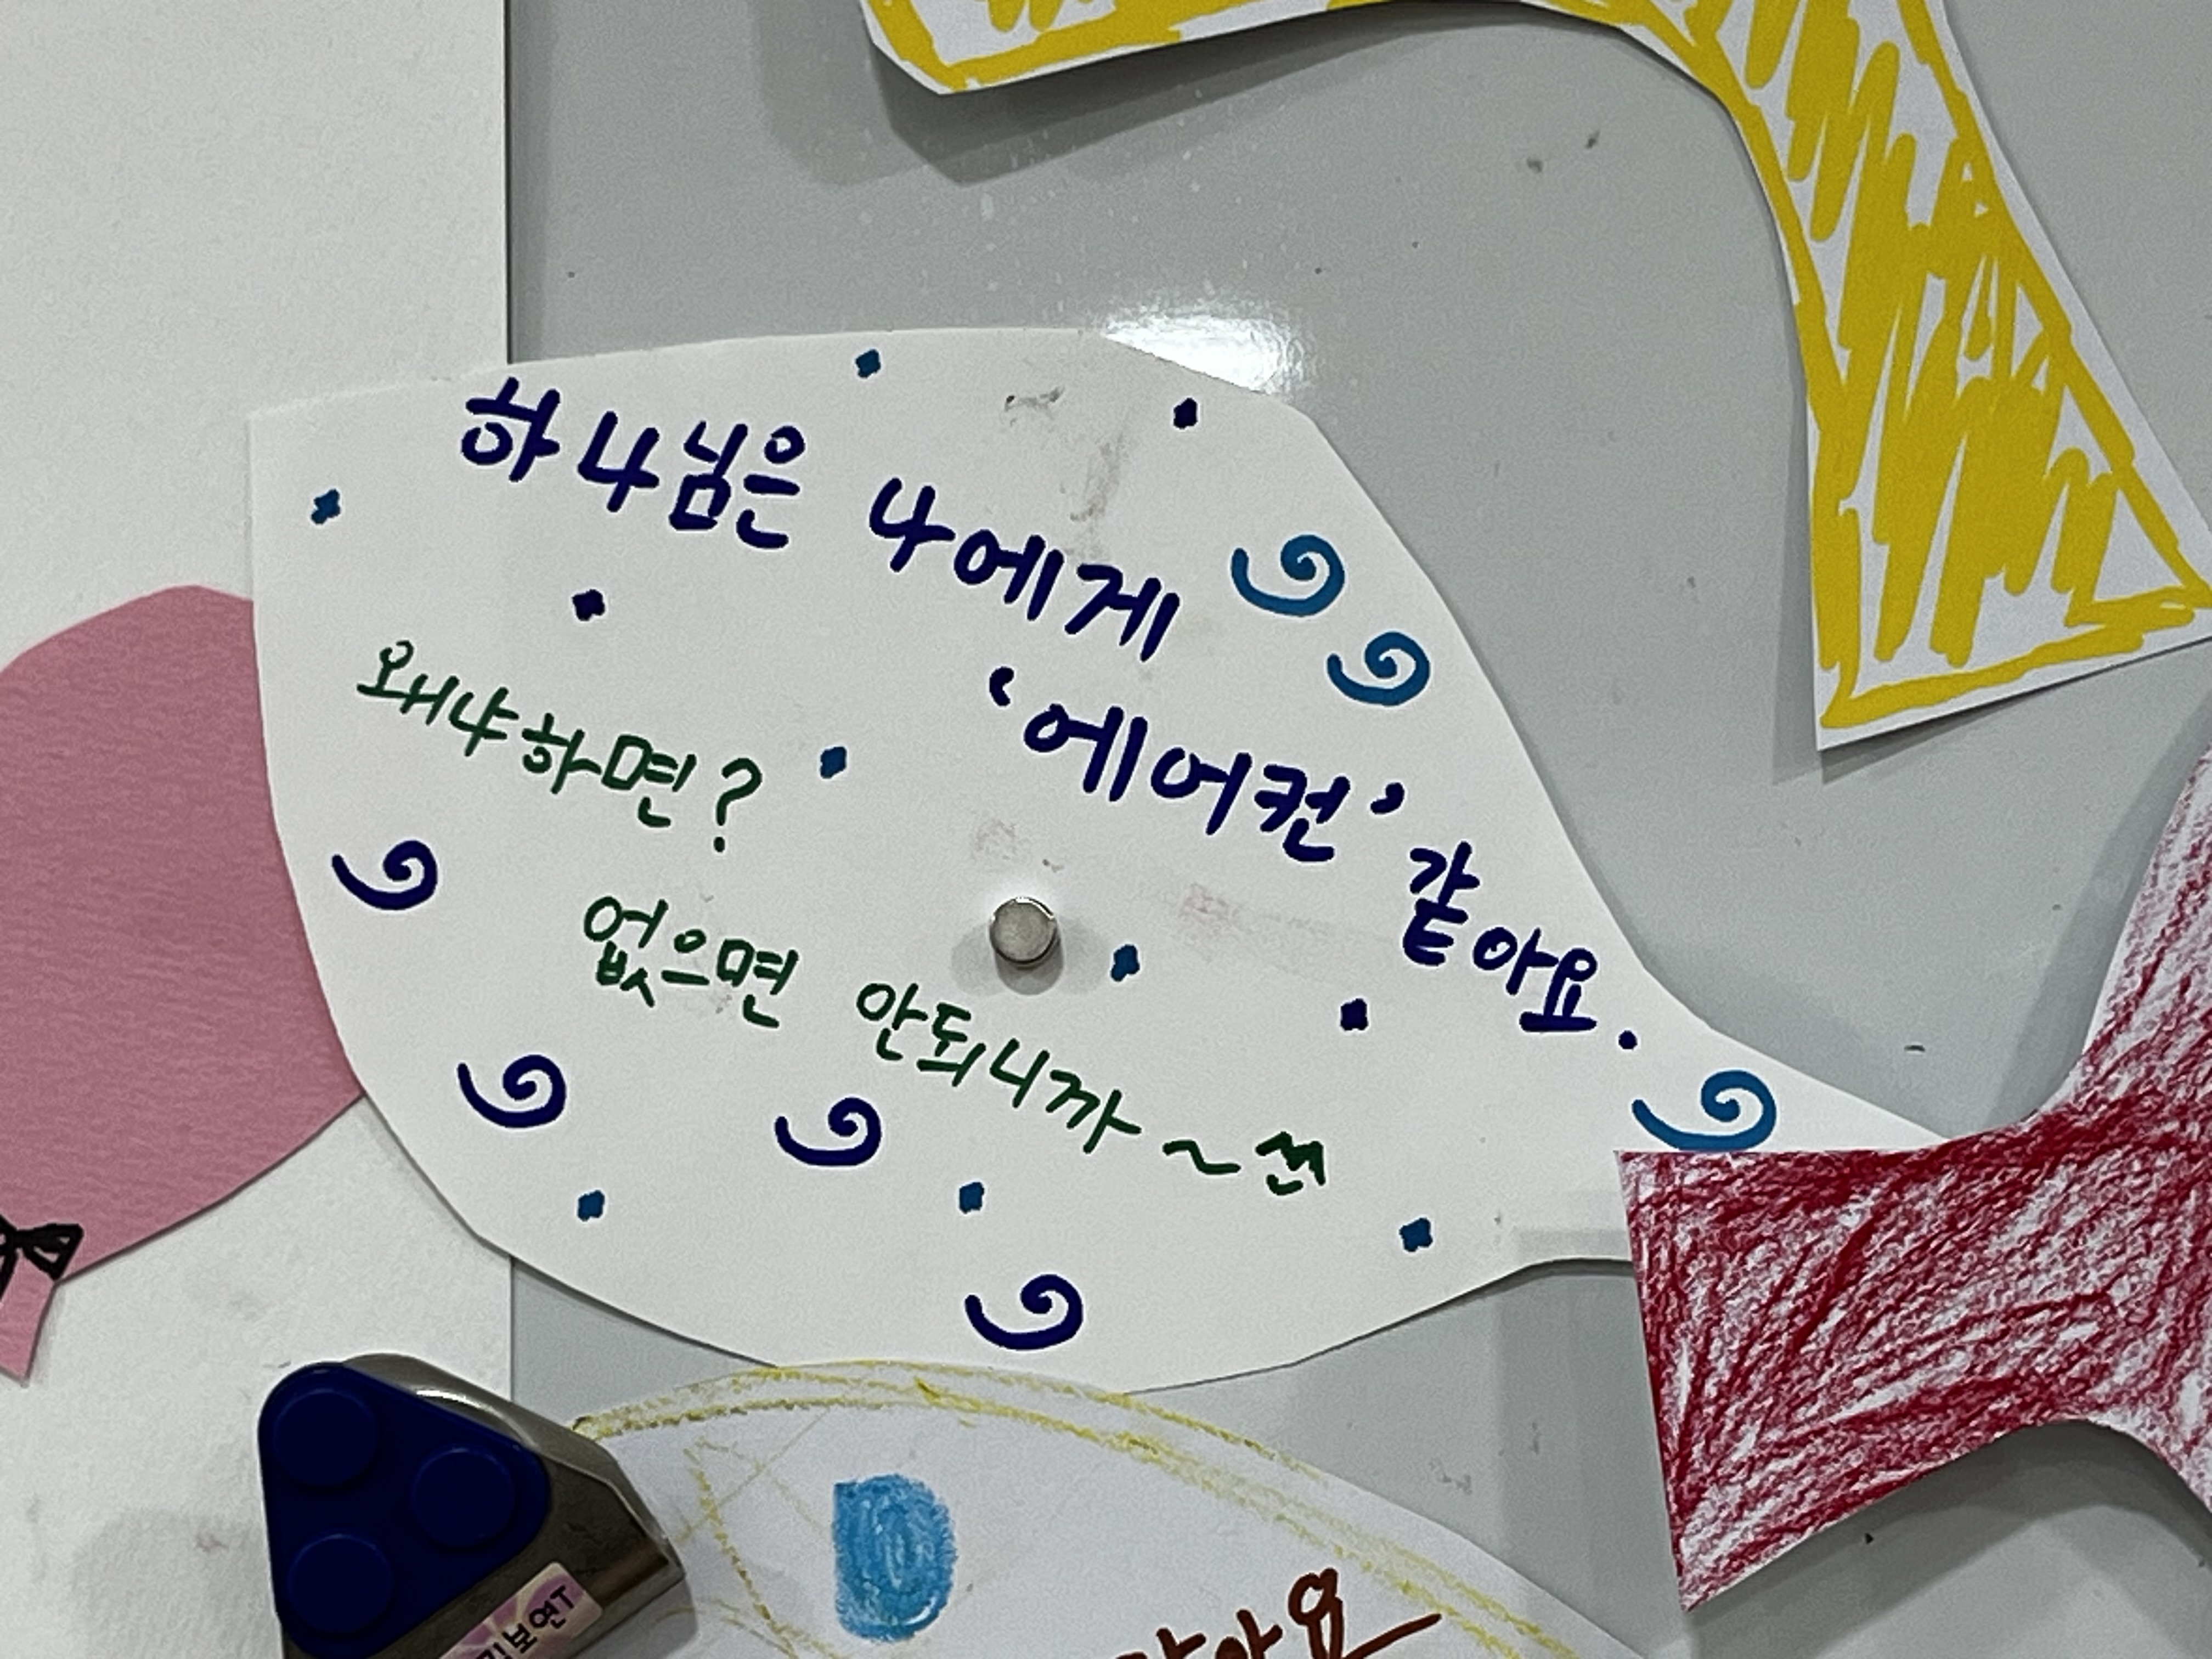 하나님은 나에게
'에어컨' 같아요.
왜냐하면?
없으면 안되니까~
보연T